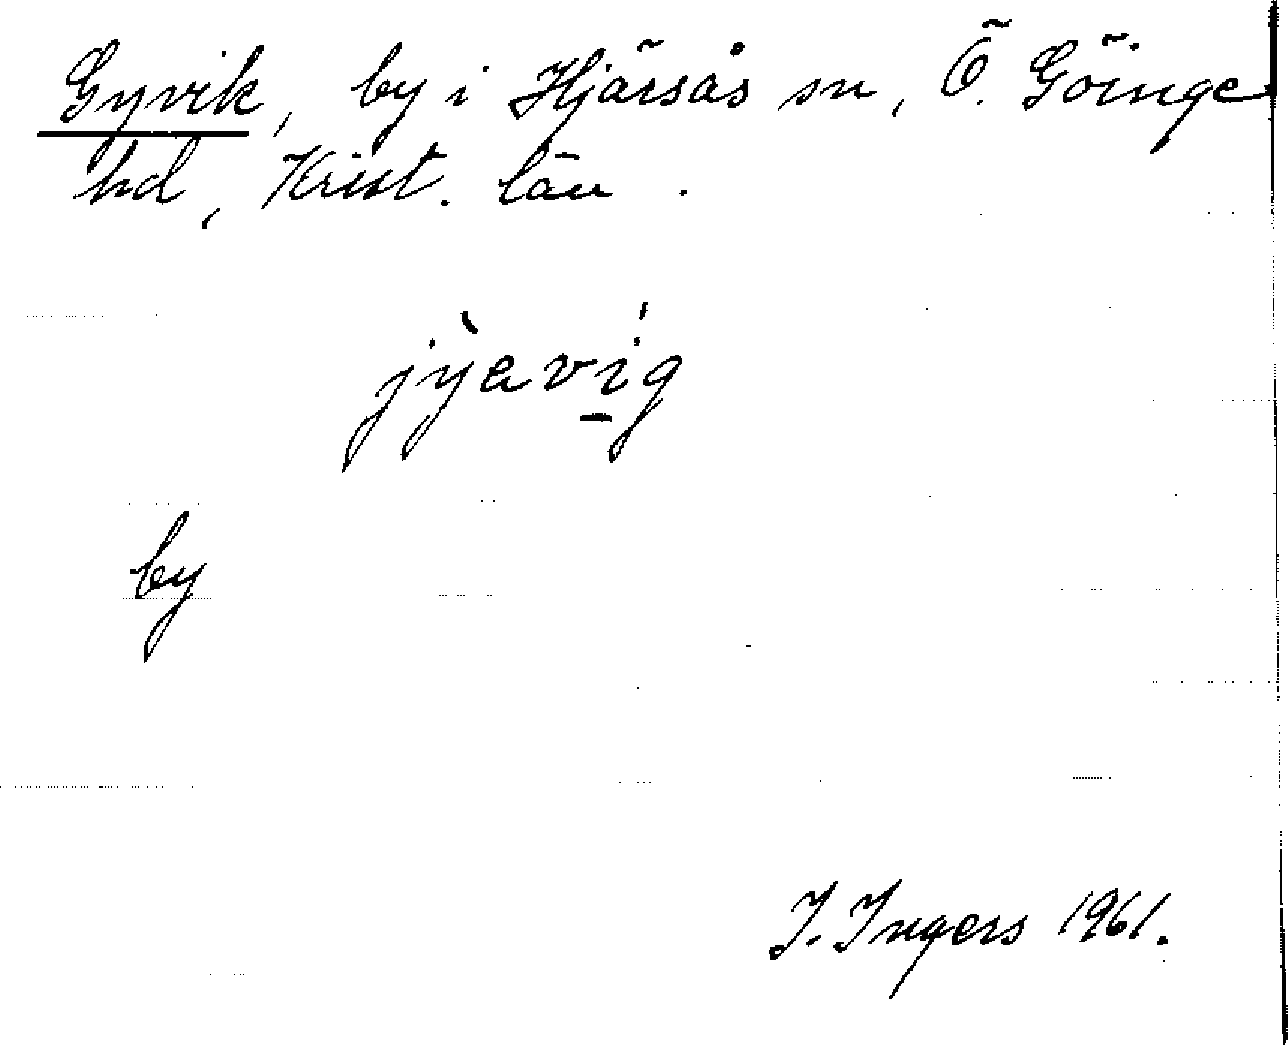 Gyvik, by i Hjärsås sn, Ö. Göinge
hd, Krist. län.
jỳavíg
by
I. Ingers 1961.